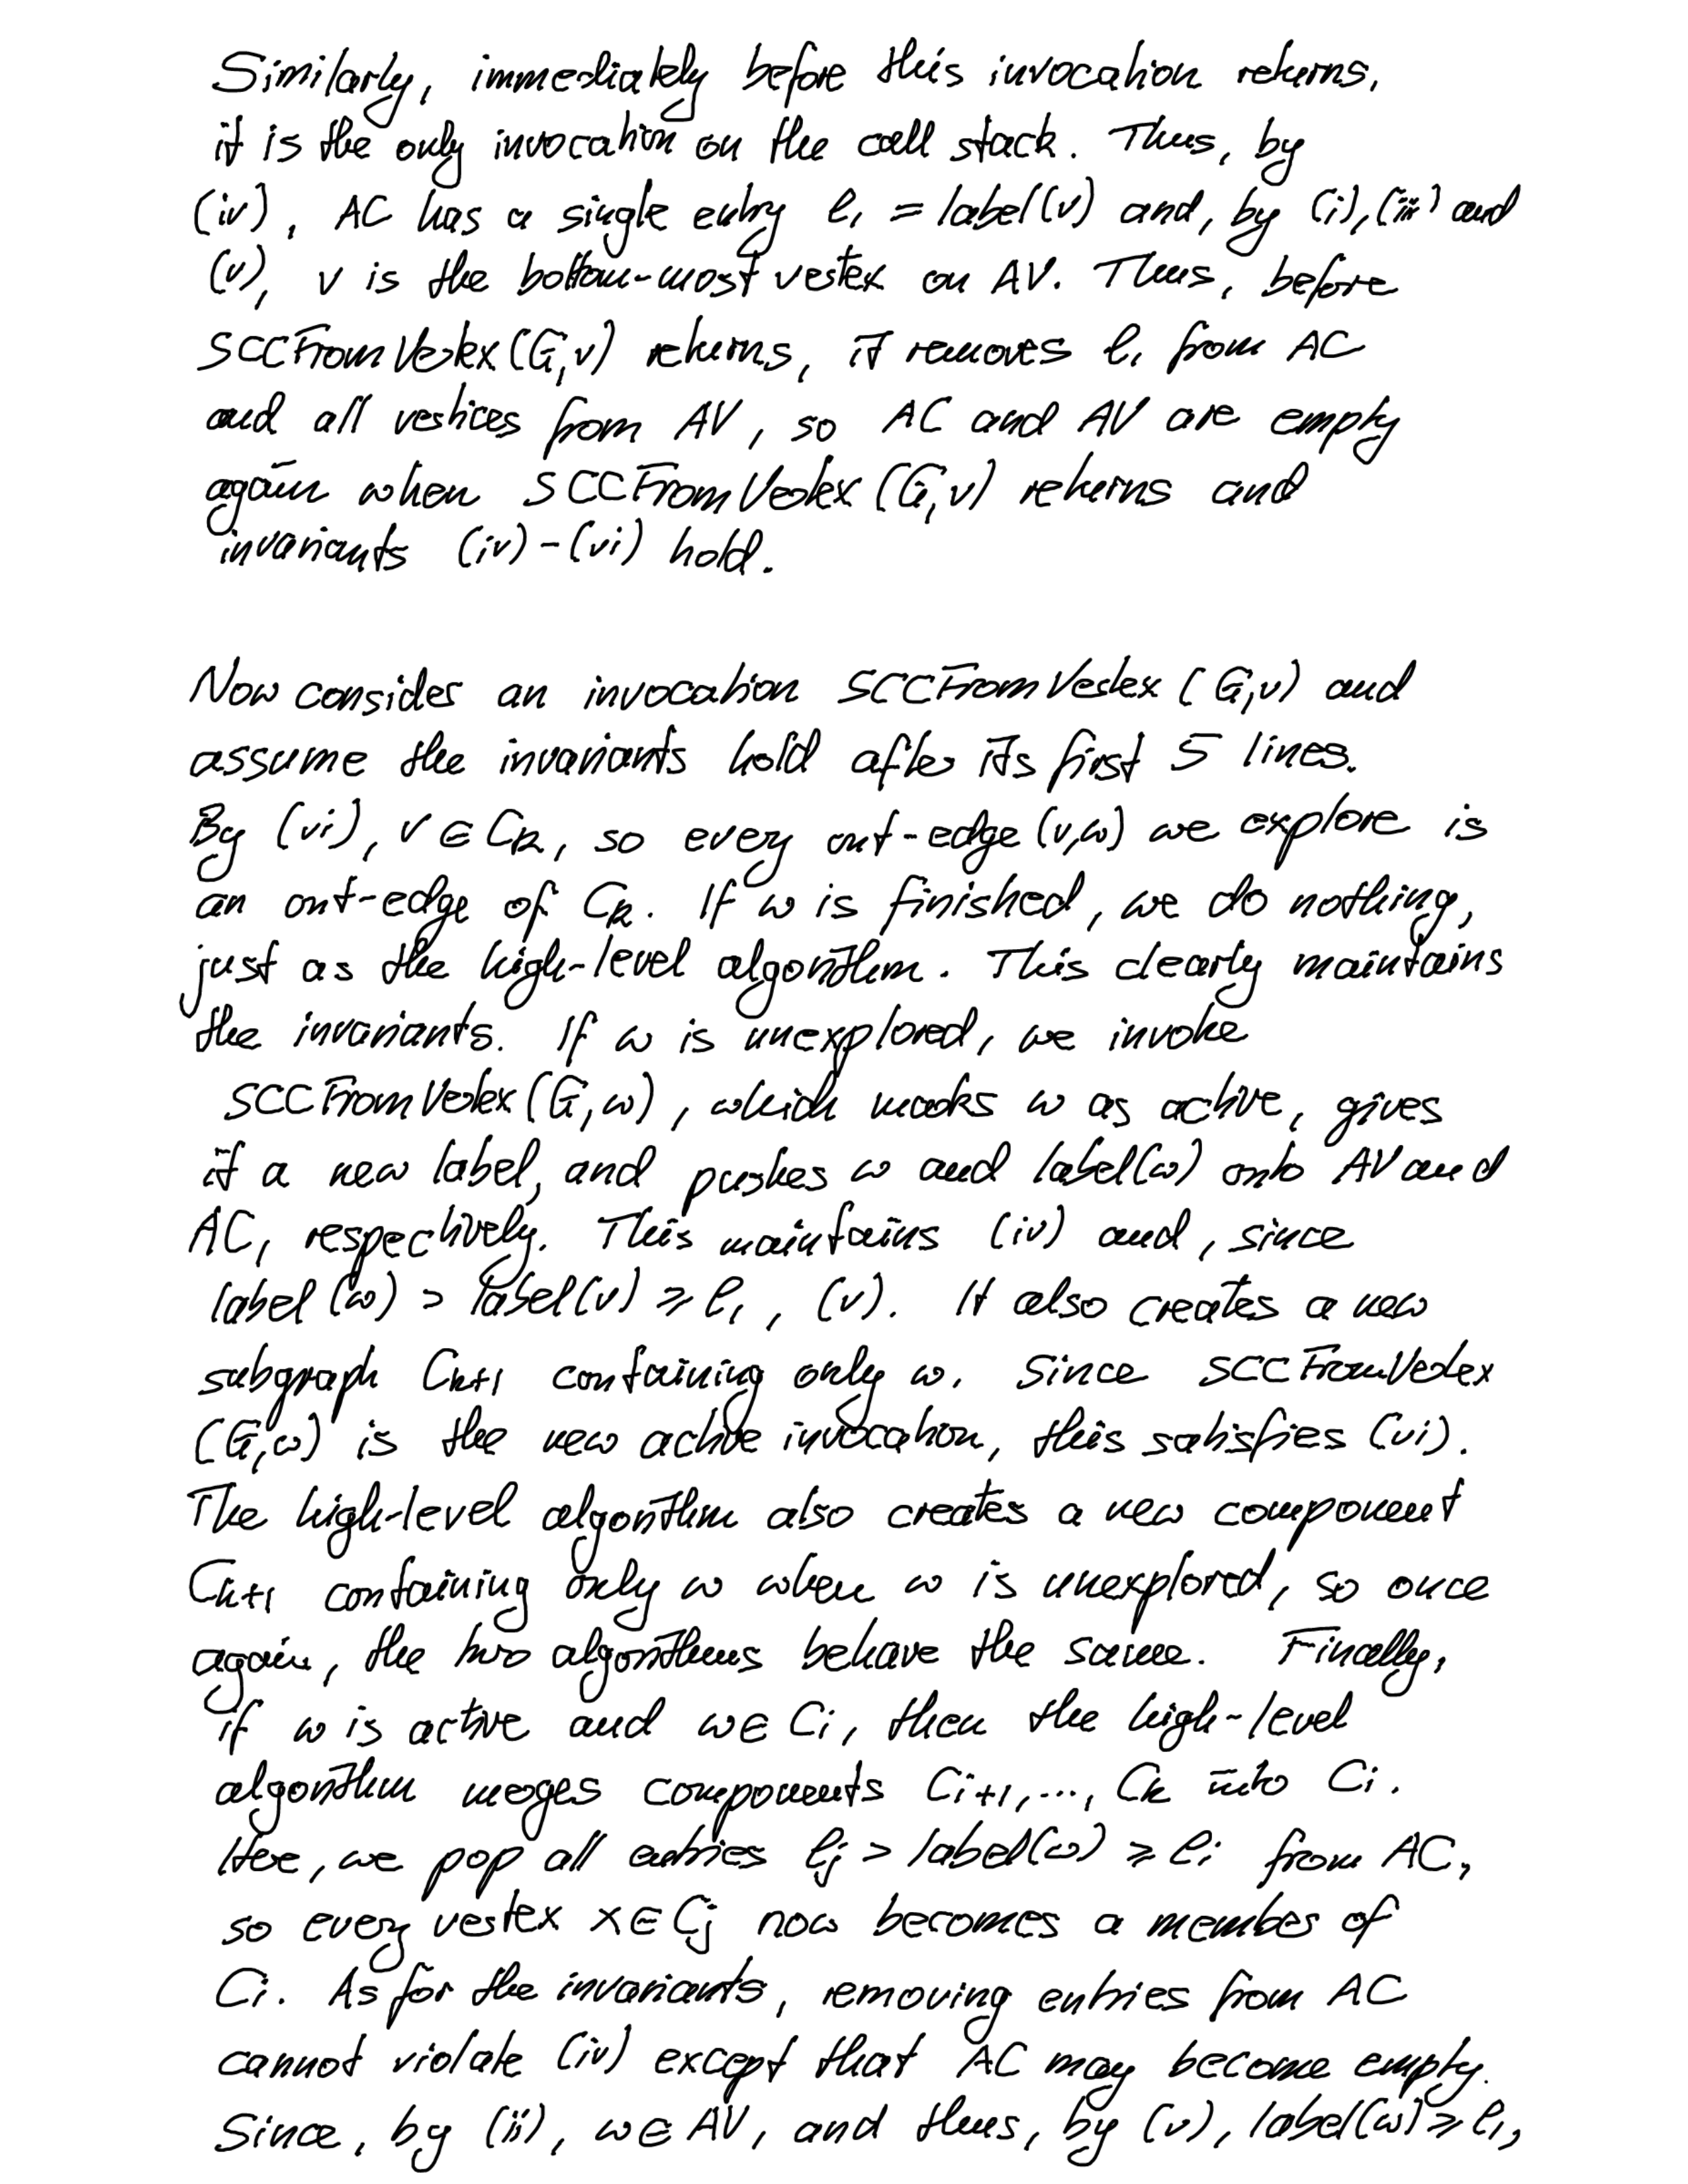 Similarly, immediately before this invocation returns,
it is the only invocation on the call stack. Thus, by
(iv), AC has a single entry l₁ = label(v) and, by (i), (iii) and
(v), v is the bottom-most vertex on AV. Thus, before
SCCFromVertex(G,v) returns, it removes l₁ from AC
and all vertices from AV, so AC and AV are empty
again when SCCFromVertex(G,v) returns and
invariants (iv)-(vi) hold.
Now consider an invocation SCCFromVertex(G,v) and
assume the invariants hold after its first 5 lines.
By (vi), v ∈ Cₖ, so every out-edge (v,w) we explore is
an out-edge of Cₖ. If w is finished, we do nothing,
just as the high-level algorithm. This clearly maintains
the invariants. If w is unexplored, we invoke
SCCFromVertex(G,w), which marks w as active, gives
it a new label, and pushes w and label(w) onto AV and
AC, respectively. This maintains (iv) and, since
label(w) > label(v) ≥ l₁, (v). It also creates a new
subgraph Cₖ₊₁ containing only w. Since SCCFromVertex
(G,w) is the new active invocation, this satisfies (vi).
The high-level algorithm also creates a new component
Cₖ₊₁ containing only w when w is unexplored, so once
again, the two algorithms behave the same. Finally,
if w is active and w ∈ Cᵢ, then the high-level
algorithm merges components Cᵢ₊₁, ..., Cₖ into Cᵢ.
Here, we pop all entries lⱼ > label(w) ≥ lᵢ from AC,
so every vertex x ∈ Cⱼ now becomes a member of
Cᵢ. As for the invariants, removing entries from AC
cannot violate (iv) except that AC may become empty.
Since, by (ii), w ∈ AV, and thus, by (v), label(w) ≥ l₁,